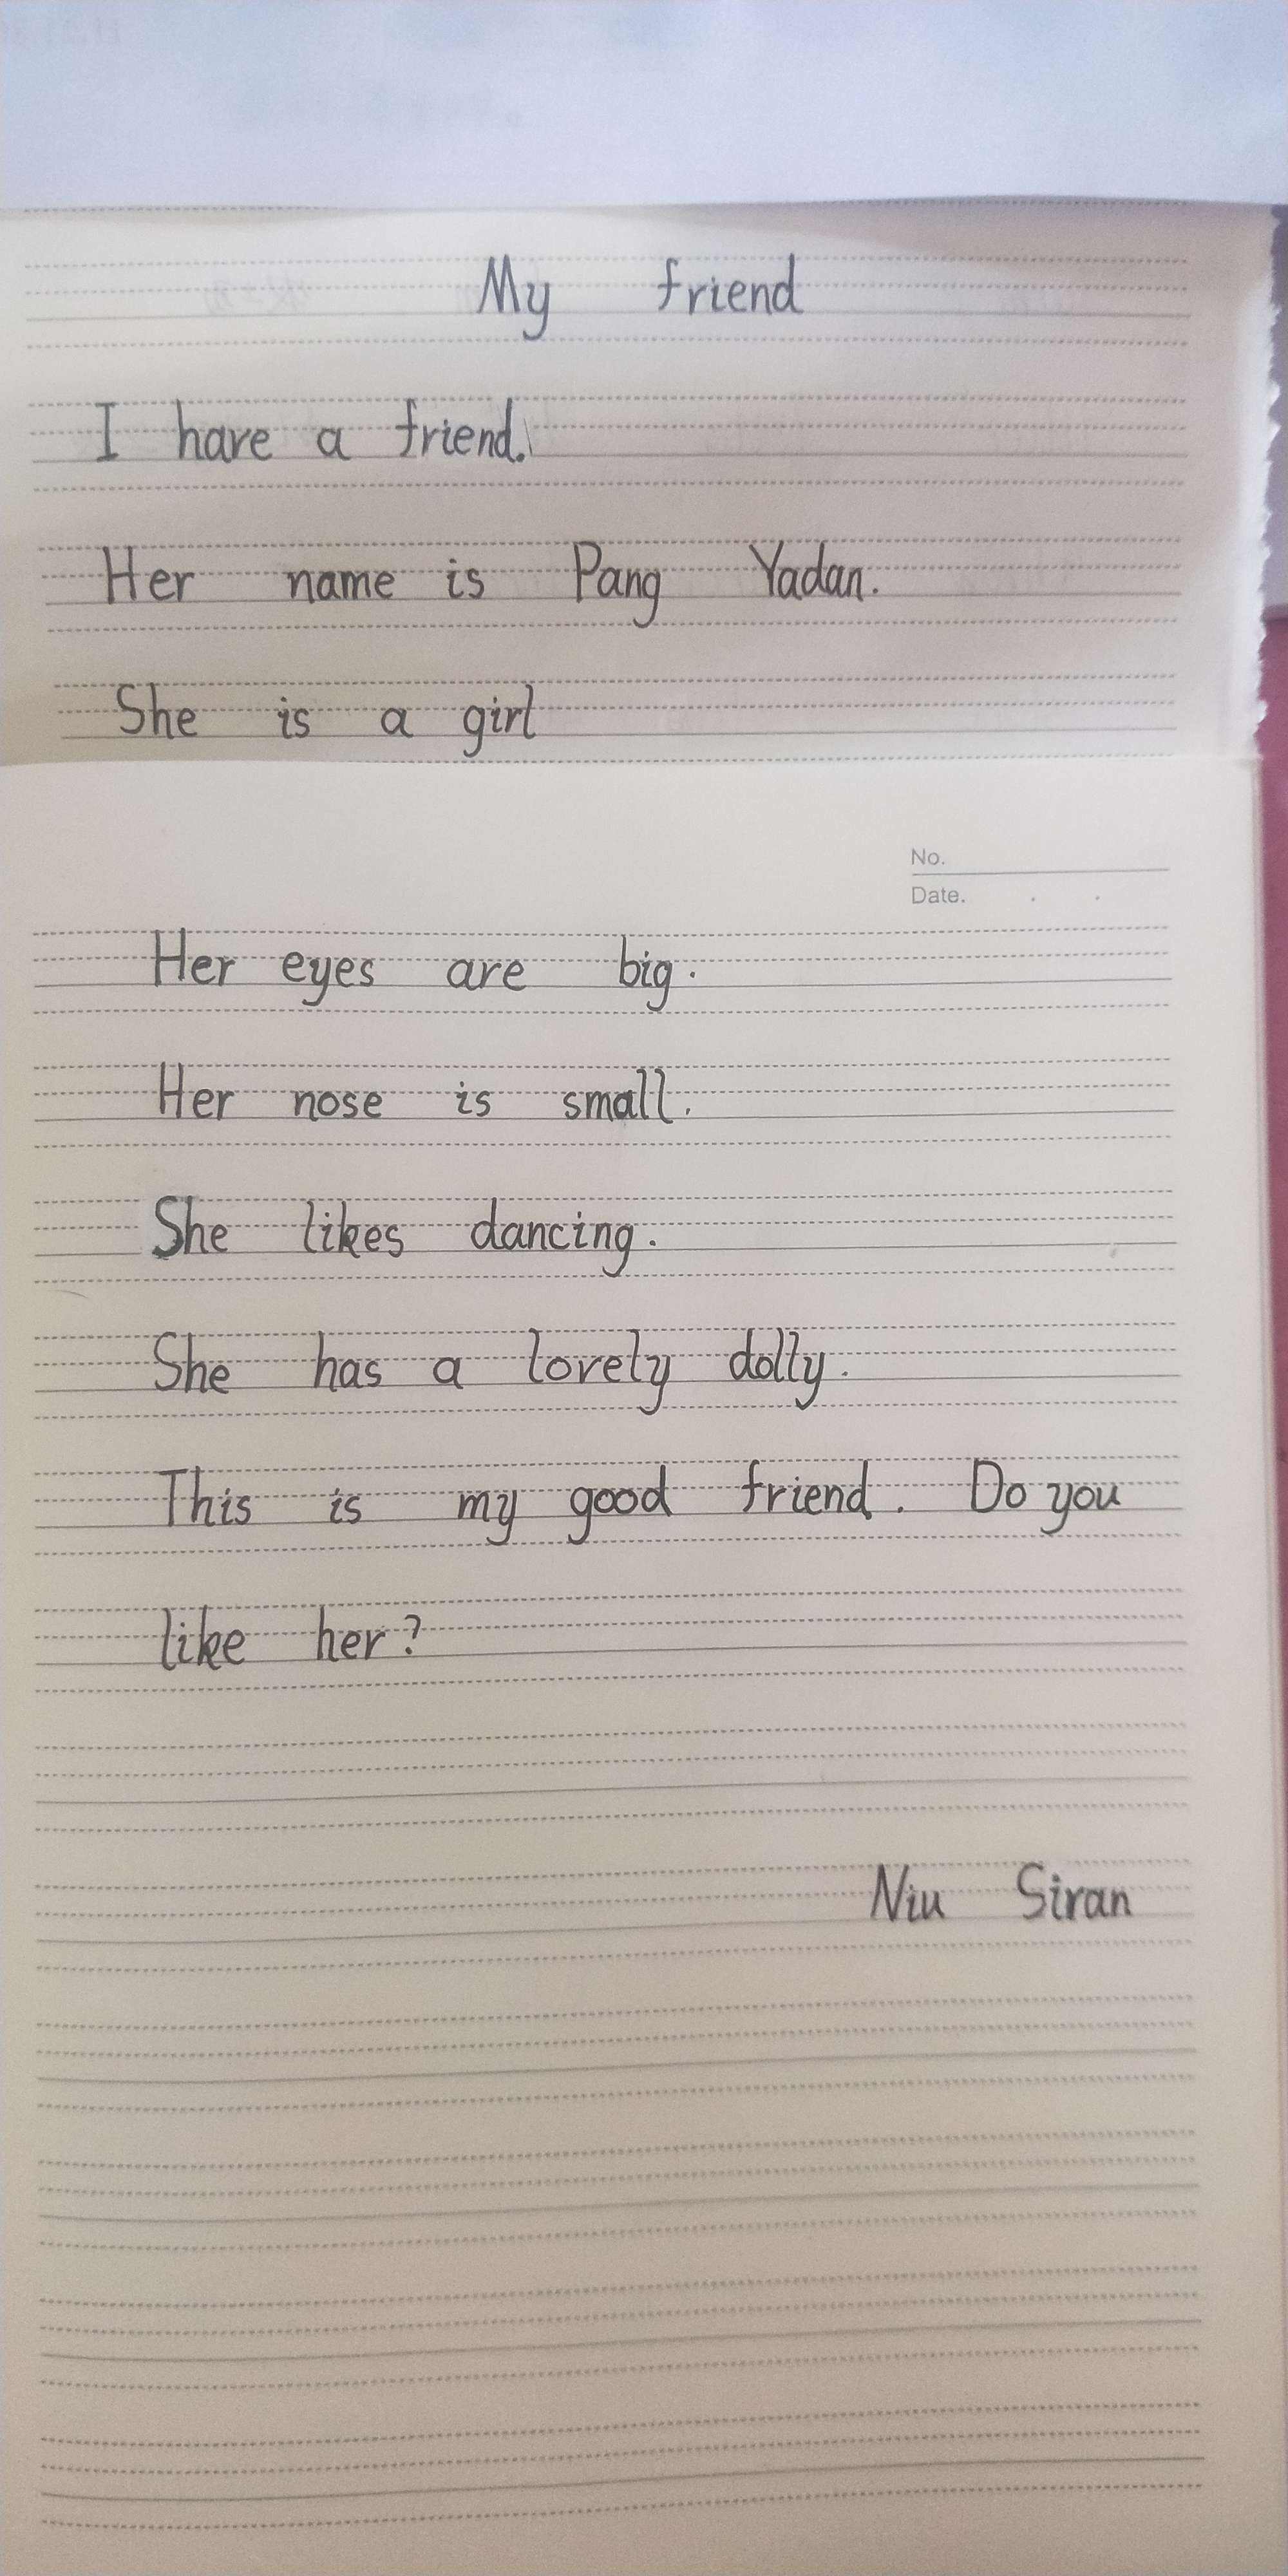 My friend
I have a friend.
Her name is Pang Yadan.
She is a girl
No.
Date.
Her eyes are big.
Her nose is small.
She likes dancing.
She has a lovely dolly.
This is my good friend. Do you
like her?
Niu Siran